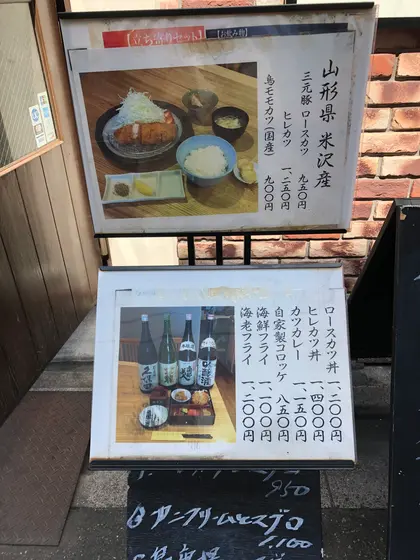 【立ち寄りセット】
【お飲み物】
山形県 米沢産
三元豚 ロースカツ 九五〇円
ヒレカツ 一、二五〇円
鳥モモカツ(国産) 九〇〇円
ロースカツ丼 一、二〇〇円
ヒレカツ丼 一、四〇〇円
カツカレー 一、一五〇円
自家製コロッケ 八五〇円
海鮮フライ 一、一〇〇円
海老フライ 一、二〇〇円
950
1,100